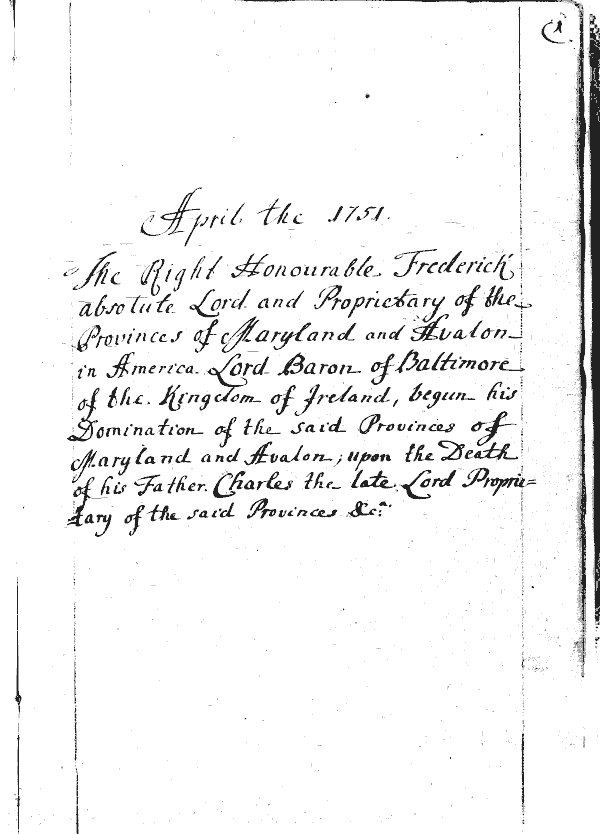 1
April the 1751.
The Right Honourable Frederick
absolute Lord and Proprietary of the
Provinces of Maryland and Avalon
in America Lord Baron of Baltimore
of the Kingdom of Ireland, begun his
Domination of the said Provinces of
Maryland and Avalon; upon the Death
of his Father Charles the late Lord Proprie=
=tary of the said Provinces &c.a